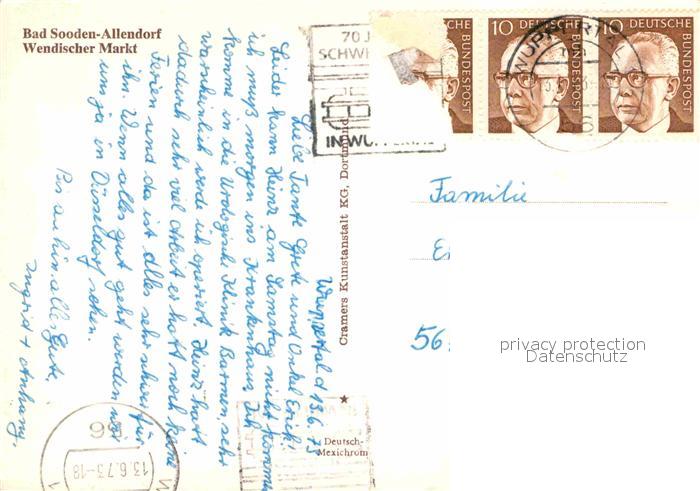 Bad Sooden-Allendorf
Wendischer Markt
70 J
SCHWE
IN WUPPERTAL
10 DEUTSCHE
BUNDESPOST
10 DEUTSCHE
BUNDESPOST
BUNDESPOST
WUPPERTAL
Wuppertal d 13.6.73
Liebe Tante Grete und Onkel Erich!
Leider kann Heinz am Samstag nicht kommen
ich muß morgen ins Krankenhaus. Ich
komme in die Urologische Klinik Barmen, sehr
warscheinlich werde ich operiert. Heinz hatt
dadurch sehr viel Arbeit er hatt noch keine
Ferien und da ist alles sehr schwer für
ihn. Wenn alles gut geht werden wir
uns ja in Düsseldorf sehen.
Bis dahin alles Gute.
Ingrid + Anhang.
Cramers Kunstanstalt KG, Dortmund
Deutsch-
Mexichrom
Familie
56
privacy protection
Datenschutz
13.6.73-18